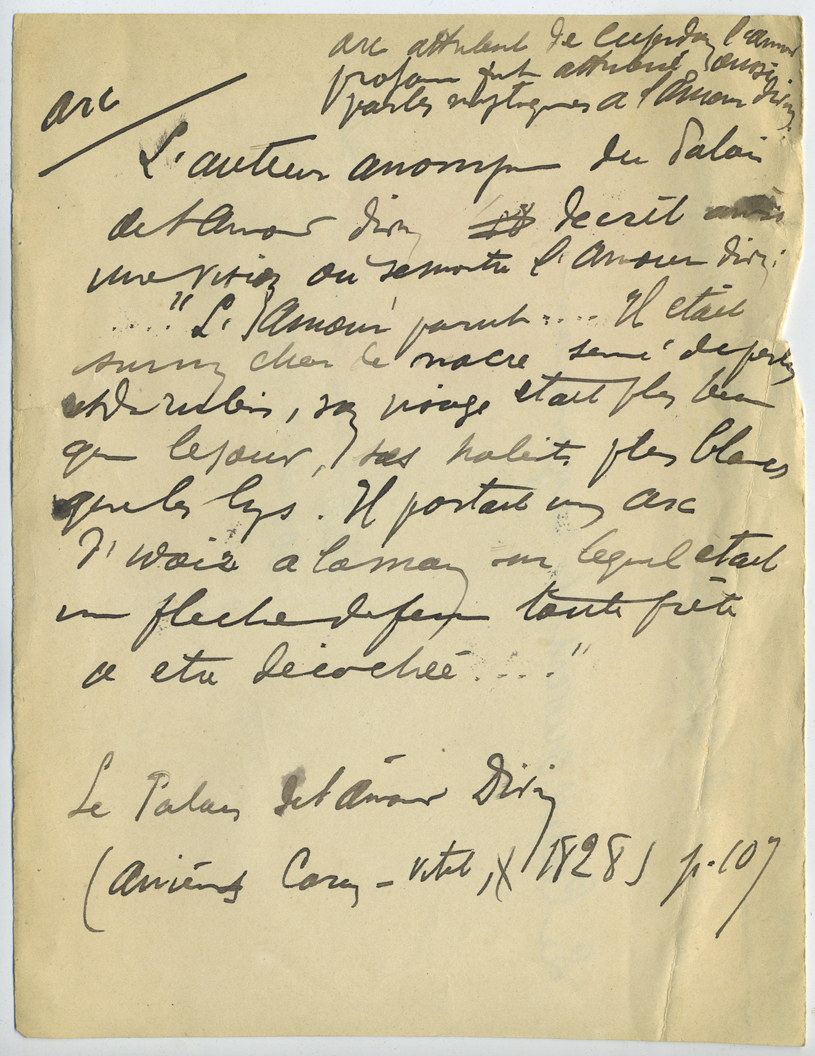 arc attribut de cupidon, l'amour
profane fut attribué aussi
par les mystiques a l'Amour divin
arc
L'auteur anonyme du Palais
de l'Amour divin decrit ainsi
une vision où se montre l'Amour divin
...." L'Amour parut .... Il était
sur un char de nacre semé de perles
et de rubis, son visage était plus beau
que le jour, ses habits plus blancs
que les lys. Il portait un arc
d'ivoire a la main sur lequel était
une fleche de feu toute prête
a etre décochée ...."
Le Palais de l'Amour Divin
(Amiens Caron-Vitet, 1828) p. 107